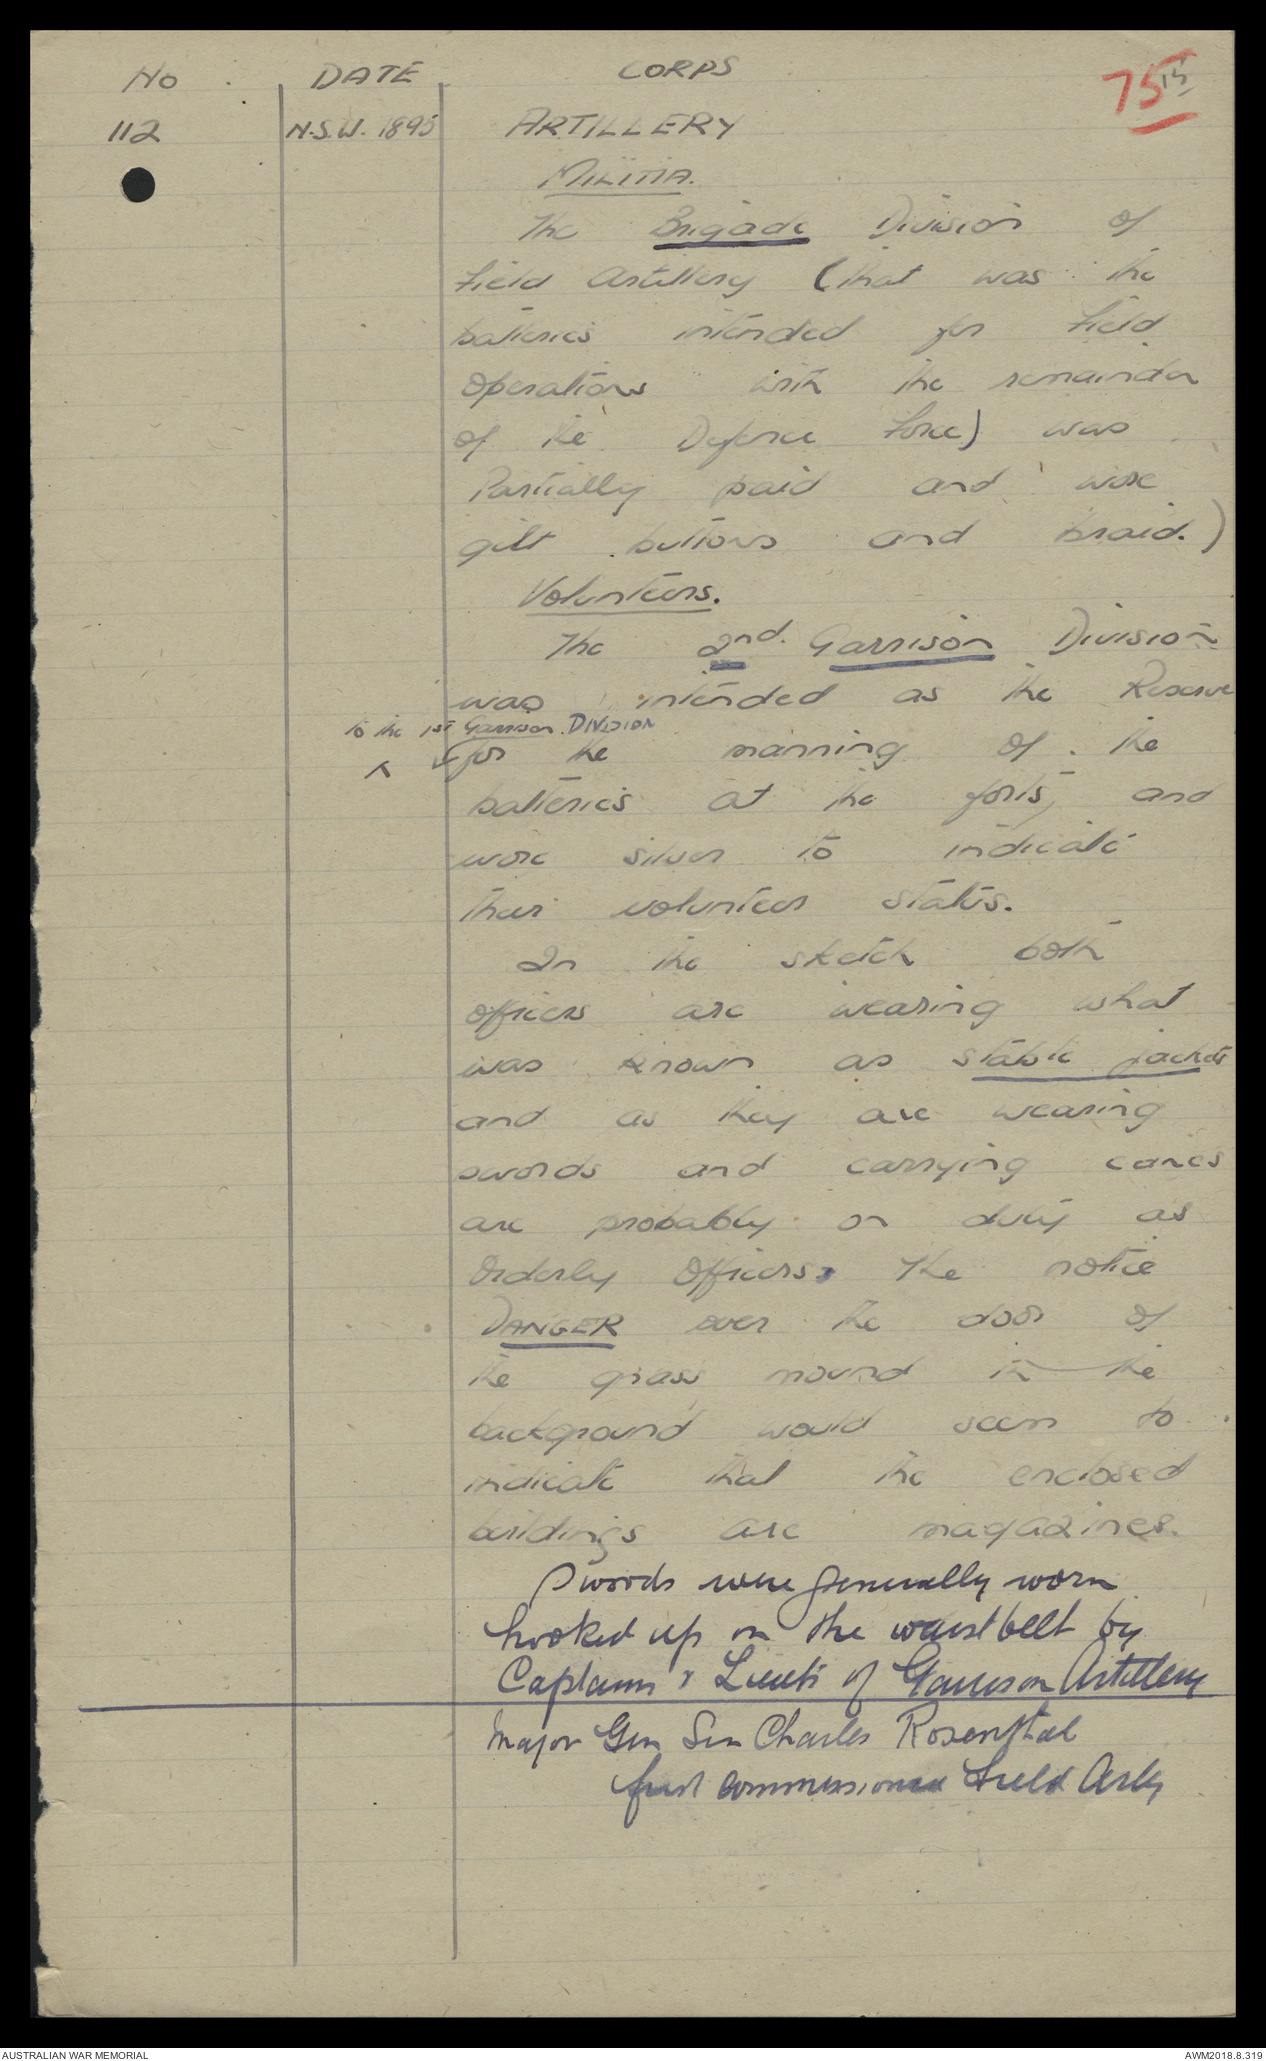 No DATE CORPS 75 15
112 N.S.W. 1895 ARTILLERY
MILITIA.
The Brigade Division of
Field Artillery (that was the
batteries intended for Field
Operations with the remainder
of the Defence Force) was
Partially paid and wore
gilt buttons and braid.)
Volunteers.
The 2nd. Garrison Division
was intended as the Reserve
to the 1st Garrison DIVISION
for the manning of the
batteries at the forts, and
wore silver to indicate
their volunteer status.
In the sketch both
officers are wearing what
was known as stable jackets
and as they are wearing
swords and carrying canes
are probably on duty as
Orderly Officers. The notice
DANGER over the door of
the grass mound in the
background would seem to
indicate that the enclosed
buildings are magazines.
Swords were generally worn
hooked up on the waistbelt by
Captains & Lieuts of Garrison Artillery
Major Gen Sir Charles Rosenthal
first commissioned Field Arty
AUSTRALIAN WAR MEMORIAL AWM2018.8.319